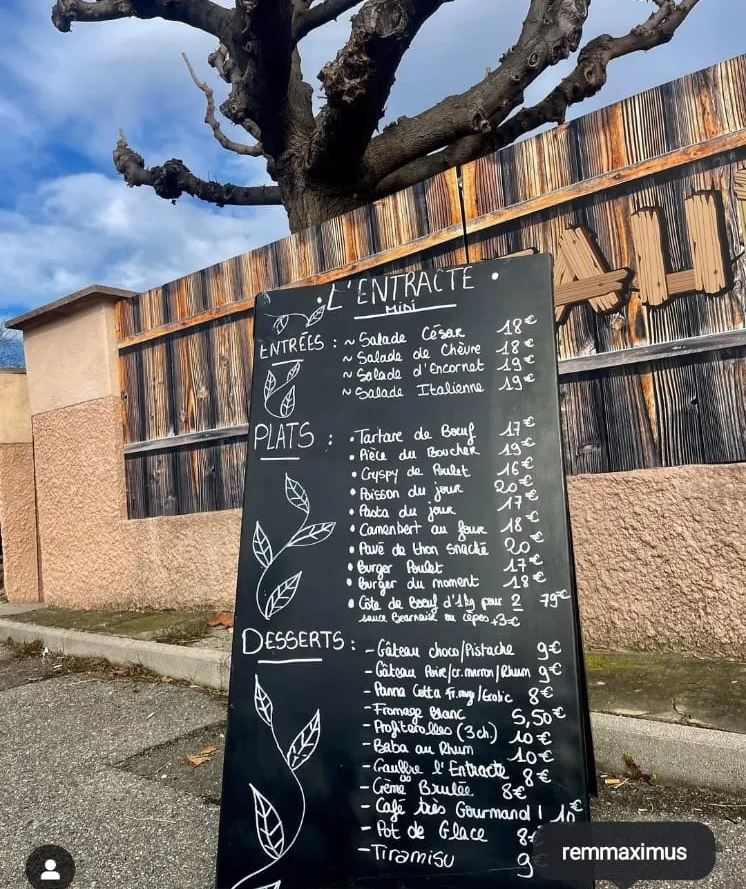 L'ENTRACTE
MIDI
ENTRÉES : ~ Salade César 18€
~ Salade de Chèvre 18€
~ Salade d'Encornet 19€
~ Salade Italienne 19€
PLATS : • Tartare de Bœuf 17€
• Pièce du Boucher 19€
• Cryspy de Poulet 16€
• Poisson du jour 20€
• Pasta du jour 17€
• Camenbert au four 18€
• Pavé de thon snacké 20€
• Burger Poulet 17€
• Burger du moment 18€
• Côte de Boeuf d'1kg pour 2 79€
sauce Bearnaise ou cèpes +3€
DESSERTS : - Gâteau choco/Pistache 9€
- Gâteau Poire/cr.marron/Rhum 9€
- Panna Cotta Fr.rouge/Exotic 8€
- Fromage Blanc 5,50€
- Profiterolles (3 ch.) 10€
- Baba au Rhum 10€
- Gauffre l'Entracte 8€
- Crème Brulée 8€
- Café très Gourmand ! 10€
- Pot de Glace 8€
- Tiramisu 9€
AU
remmaximus